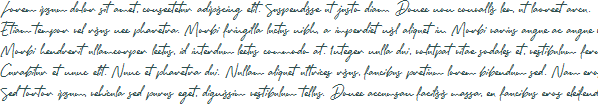 Lorem ipsum dolor sit amet, consectetur adipiscing elit. Suspendisse ut justo diam. Donec non convallis leo, ut laoreet arcu.
Etiam tempor vel risus nec pharetra. Morbi fringilla luctus nibh, a imperdiet nisl aliquet in. Morbi varius augue ac augue
Morbi hendrerit ullamcorper lectus, id interdum lectus commodo at. Integer nulla dui, volutpat vitae sodales et, vestibulum
Curabitur et nunc elit. Nunc et pharetra dui. Nullam aliquet ultrices risus, faucibus pretium lorem bibendum sed. Nam
Sed tortor ipsum, vehicula sed purus eget, dignissim vestibulum tellus. Donec accumsan facilisis massa, eu faucibus eros eleifend